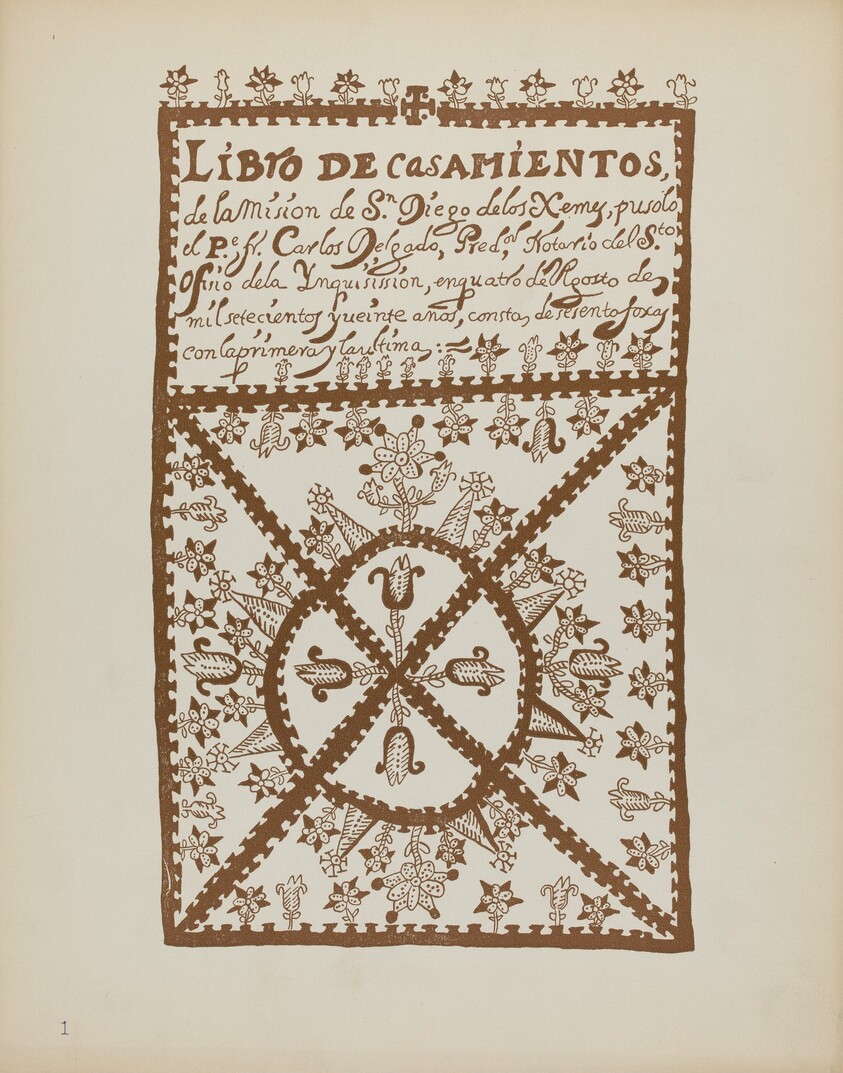 LiBro DE CasAMIENTOS,
de la Mision de S.n Diego delos Xemes, pusolo
el P.e fr. Carlos Delgado, Pred.or Notario del S.to
Ofisio dela Ynquisission, enquatro de Agosto de
mil setecientos y ueinte años, consta, de sesenta foxas
con la primera y la ultima, :~
1